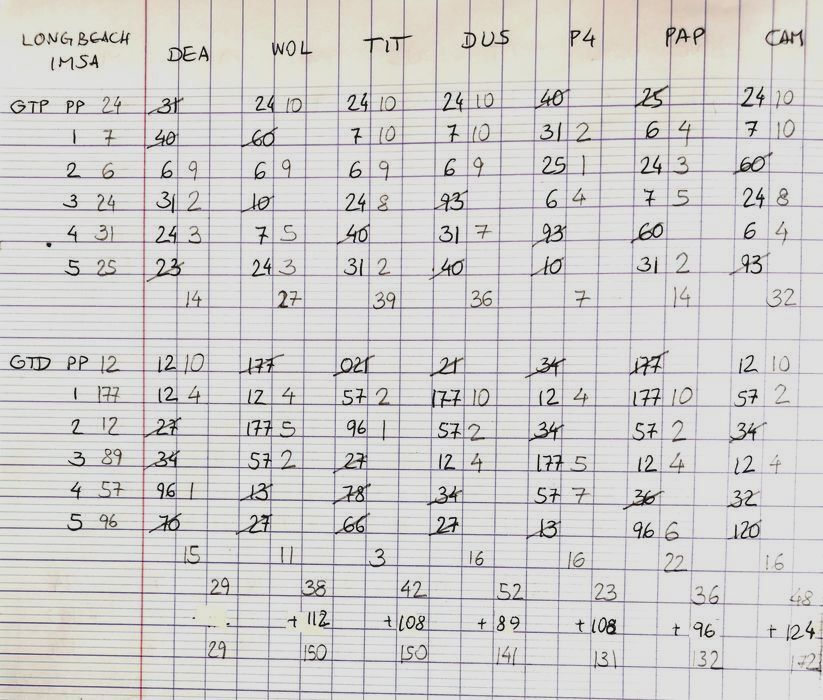 LONGBEACH DEA WOL TIT DUS P4 PAP CAM
IMSA
GTP PP 24 31 24 10 24 10 24 10 40 25 24 10
1 7 40 60 7 10 7 10 31 2 6 4 7 10
2 6 6 9 6 9 6 9 6 9 25 1 24 3 60
3 24 31 2 10 24 8 93 6 4 7 5 24 8
4 31 24 3 7 5 40 31 7 93 60 6 4
5 25 23 24 3 31 2 40 10 31 2 93
14 27 39 36 7 14 32
GTD PP 12 12 10 177 021 21 34 177 12 10
1 177 12 4 12 4 57 2 177 10 12 4 177 10 57 2
2 12 27 177 5 96 1 57 2 34 57 2 34
3 89 34 57 2 27 12 4 177 5 12 4 12 4
4 57 96 1 13 78 34 57 7 36 32
5 96 70 27 66 27 13 96 6 120
15 11 3 16 16 22 16
29 38 42 52 23 36 48
+ 112 + 108 + 89 + 108 + 96 + 124
29 150 150 141 131 132 172